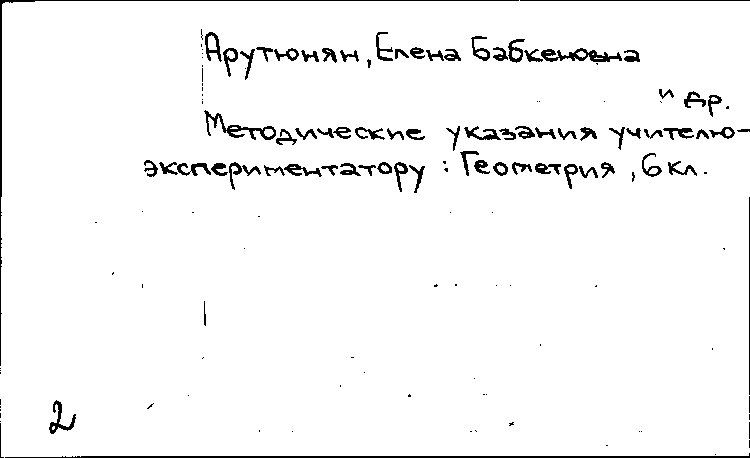 Арутюнян, Елена Бабкеновна
и др.
Методические указания учителю-
экспериментатору : Геометрия , 6 кл.
2